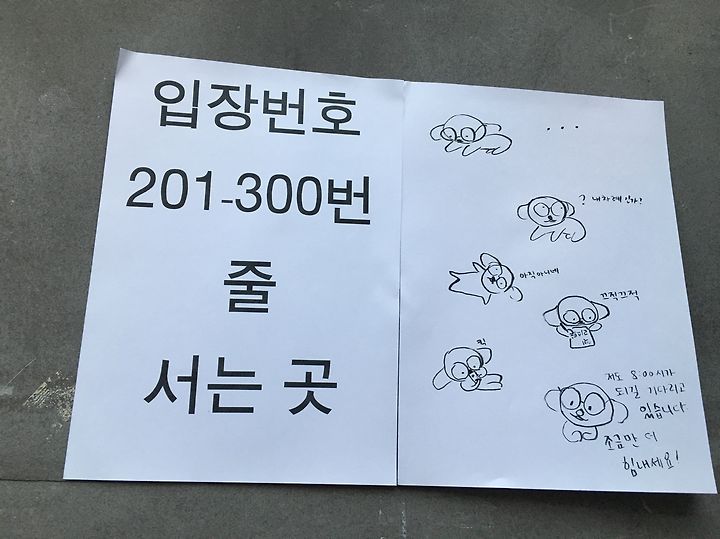 입장번호
201-300번
줄
서는 곳
...
? 내차례인가?
아직아니네
끄적끄적
픽
저도 8:00시가
되길 기다리고
있습니다
조금만 더
힘내세요!